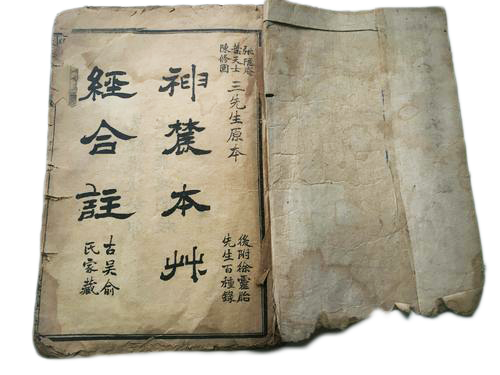 張隱庵
葉天士
陳修園
三先生原本
後附徐靈胎
先生百種錄
神農本艸
經合註
古吳俞
氏家藏